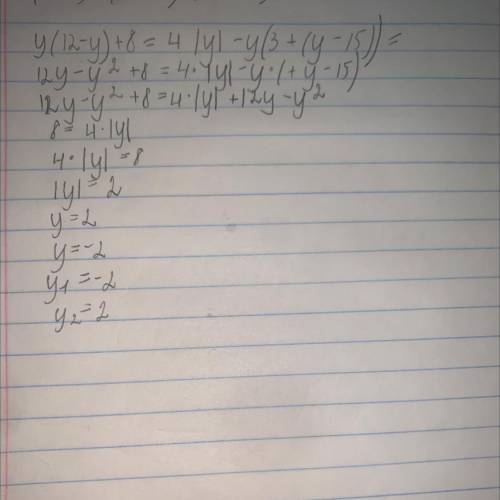 y(12-y)+8 = 4 |y| -y(3+(y-15)) =
12y-y² +8 = 4·|y| -y·(+y-15)
12y-y² +8 = 4·|y| +12y-y²
8 = 4·|y|
4·|y| = 8
|y| = 2
y = 2
y = -2
y₁ = -2
y₂ = 2